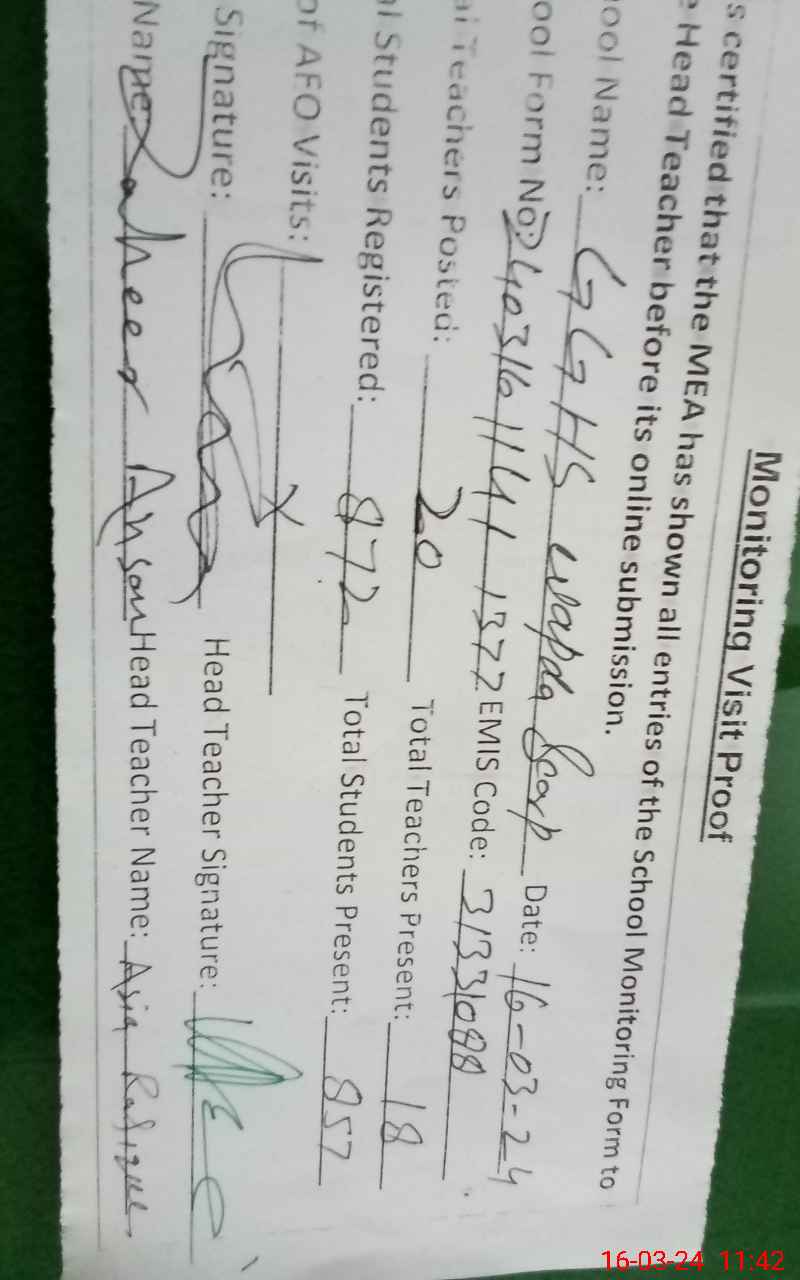 Monitoring Visit Proof
s certified that the MEA has shown all entries of the School Monitoring Form to
e Head Teacher before its online submission.
ool Name: GGHS wapda Scarp Date: 16-03-24
ool Form No: 240316 1141 1377 EMIS Code: 31331088
al Teachers Posted: 20 Total Teachers Present: 18
al Students Registered: 872 Total Students Present: 857
of AEO Visits: x
Signature: Head Teacher Signature:
Name: Zaheer Ansar Head Teacher Name: Asia Rafique
16-03-24 11:42